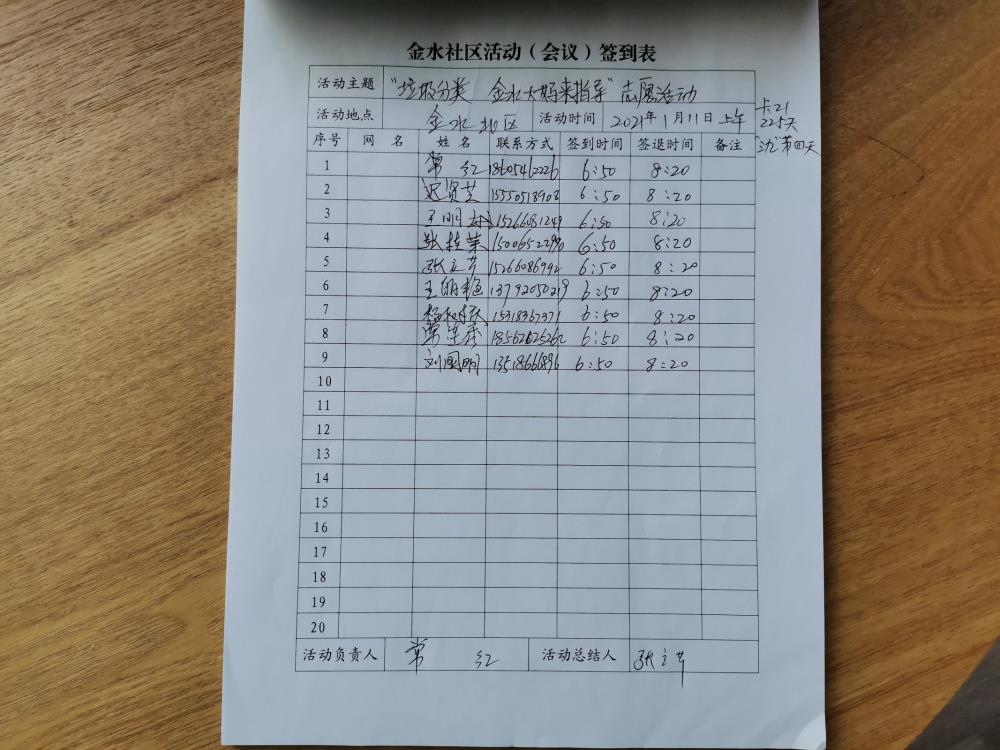 金水社区活动（会议）签到表
活动主题 "垃圾分类 金水大妈来指导"志愿活动
活动地点 金水社区 活动时间 2021年1月11日上午
225天
第四天
序号 网名 姓名 联系方式 签到时间 签退时间 备注
1 常红 18605462226 6:50 8:20
2 迟贤芝 15550518908 6:50 8:20
3 王明 15266081249 6:50 8:20
4 张桂荣 15006522990 6:50 8:20
5 张立芹 15266086992 6:50 8:20
6 王丽艳 13792050219 6:50 8:20
7 15318367371 6:50 8:20
8 常 6:50 8:20
9 刘国明 13518661896 6:50 8:20
10
11
12
13
14
15
16
17
18
19
20
活动负责人 常红 活动总结人 张立芹